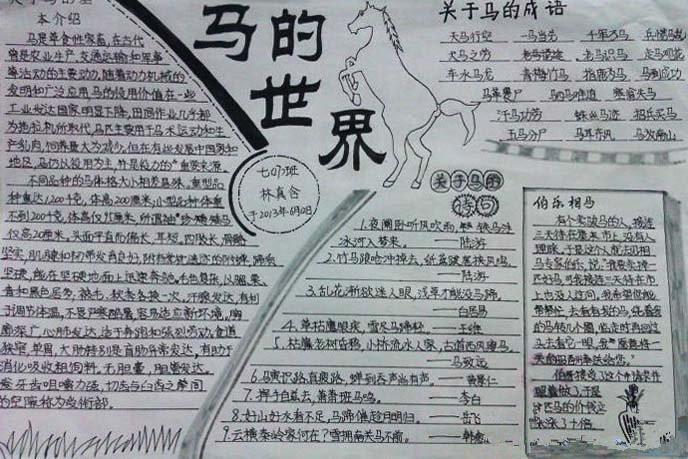 关于马的基
本介绍
马是草食性家畜,在古代
曾是农业生产、交通运输和军事
等活动的主要动力,随着动力机械的
发明和广泛应用,马的役用价值在一些
工业发达国家明显下降,田间作业几乎都
为拖拉机所取代,马匹主要用于马术运动和生
产乳肉,饲养量大为减少。但在有些发展中国家和
地区,马仍以役用为主,并是役力的重要来源。
不同品种的马体格大小相差悬殊,重型品
种重达1200千克,体高200厘米;小型品种体重
不到200千克,体高仅95厘米,所谓袖珍矮马
仅高20厘米。头面平直而偏长,耳短。四肢长,骨骼
坚实,肌腱和韧带发育良好,附有掌枕遗迹的附蝉,蹄质
坚硬,能在坚硬地面上迅速奔驰。毛色复杂,以骝、栗、
青和黑色居多;被毛、秋冬各换一次。汗腺发达,有利
于调节体温,不畏严寒酷暑,容易适应新环境。胸
廓深广,心肺发达,适于奔跑和强烈劳动。食道
狭窄,单胃,大肠特别是盲肠异常发达,有助于
消化吸收粗饲料。无胆囊,胆管发达。
牙齿咀嚼力强,切齿与臼齿之间
的空隙称为受衔部。
马的
世
界
七(7)班
林真含
于2013年6月0日
关于马的成语
天马行空 一马当先 千军万马 兵慌马乱
犬马之劳 老马识途 走马观花
车水马龙 青梅竹马 指鹿为马 马到成功
马革裹尸 塞翁失马
汗马功劳 蛛丝马迹 招兵买马
五马分尸 马耳东风 马放南山
关于马的
诗句
1.夜阑卧听风吹雨,铁马冰河入梦来。——陆游
2.竹马踉跄冲掉去,纸鸢跋扈挟风鸣。
——陆游
3.乱花渐欲迷人眼,浅草才能没马蹄。
——白居易
4.草枯鹰眼疾,雪尽马蹄轻。——王维
5.枯藤老树昏鸦,小桥流水人家,古道西风瘦马。
——马致远
6.马熟识路真疲路,蝉到吞声尚有声。——黄景仁
7.挥手自兹去,萧萧班马鸣。——李白
8.好山好水看不足,马蹄催趁月明归。——岳飞
9.云横秦岭家何在?雪拥南关马不前。——韩愈
伯乐相马
有个卖骏马的人,接连
三天待在集市上,没有人
理睬,于是这个人就去见相
马专家伯乐,说:"我要卖掉一
匹好马,可是接连三天待在市
上也没人过问,我希望您能
帮帮忙,去看看我的马,绕着我
的马转几个圈,临走时再回过
头去看它一眼,我愿意
天的
伯乐接受了这个
于是
匹马的价钱
十倍